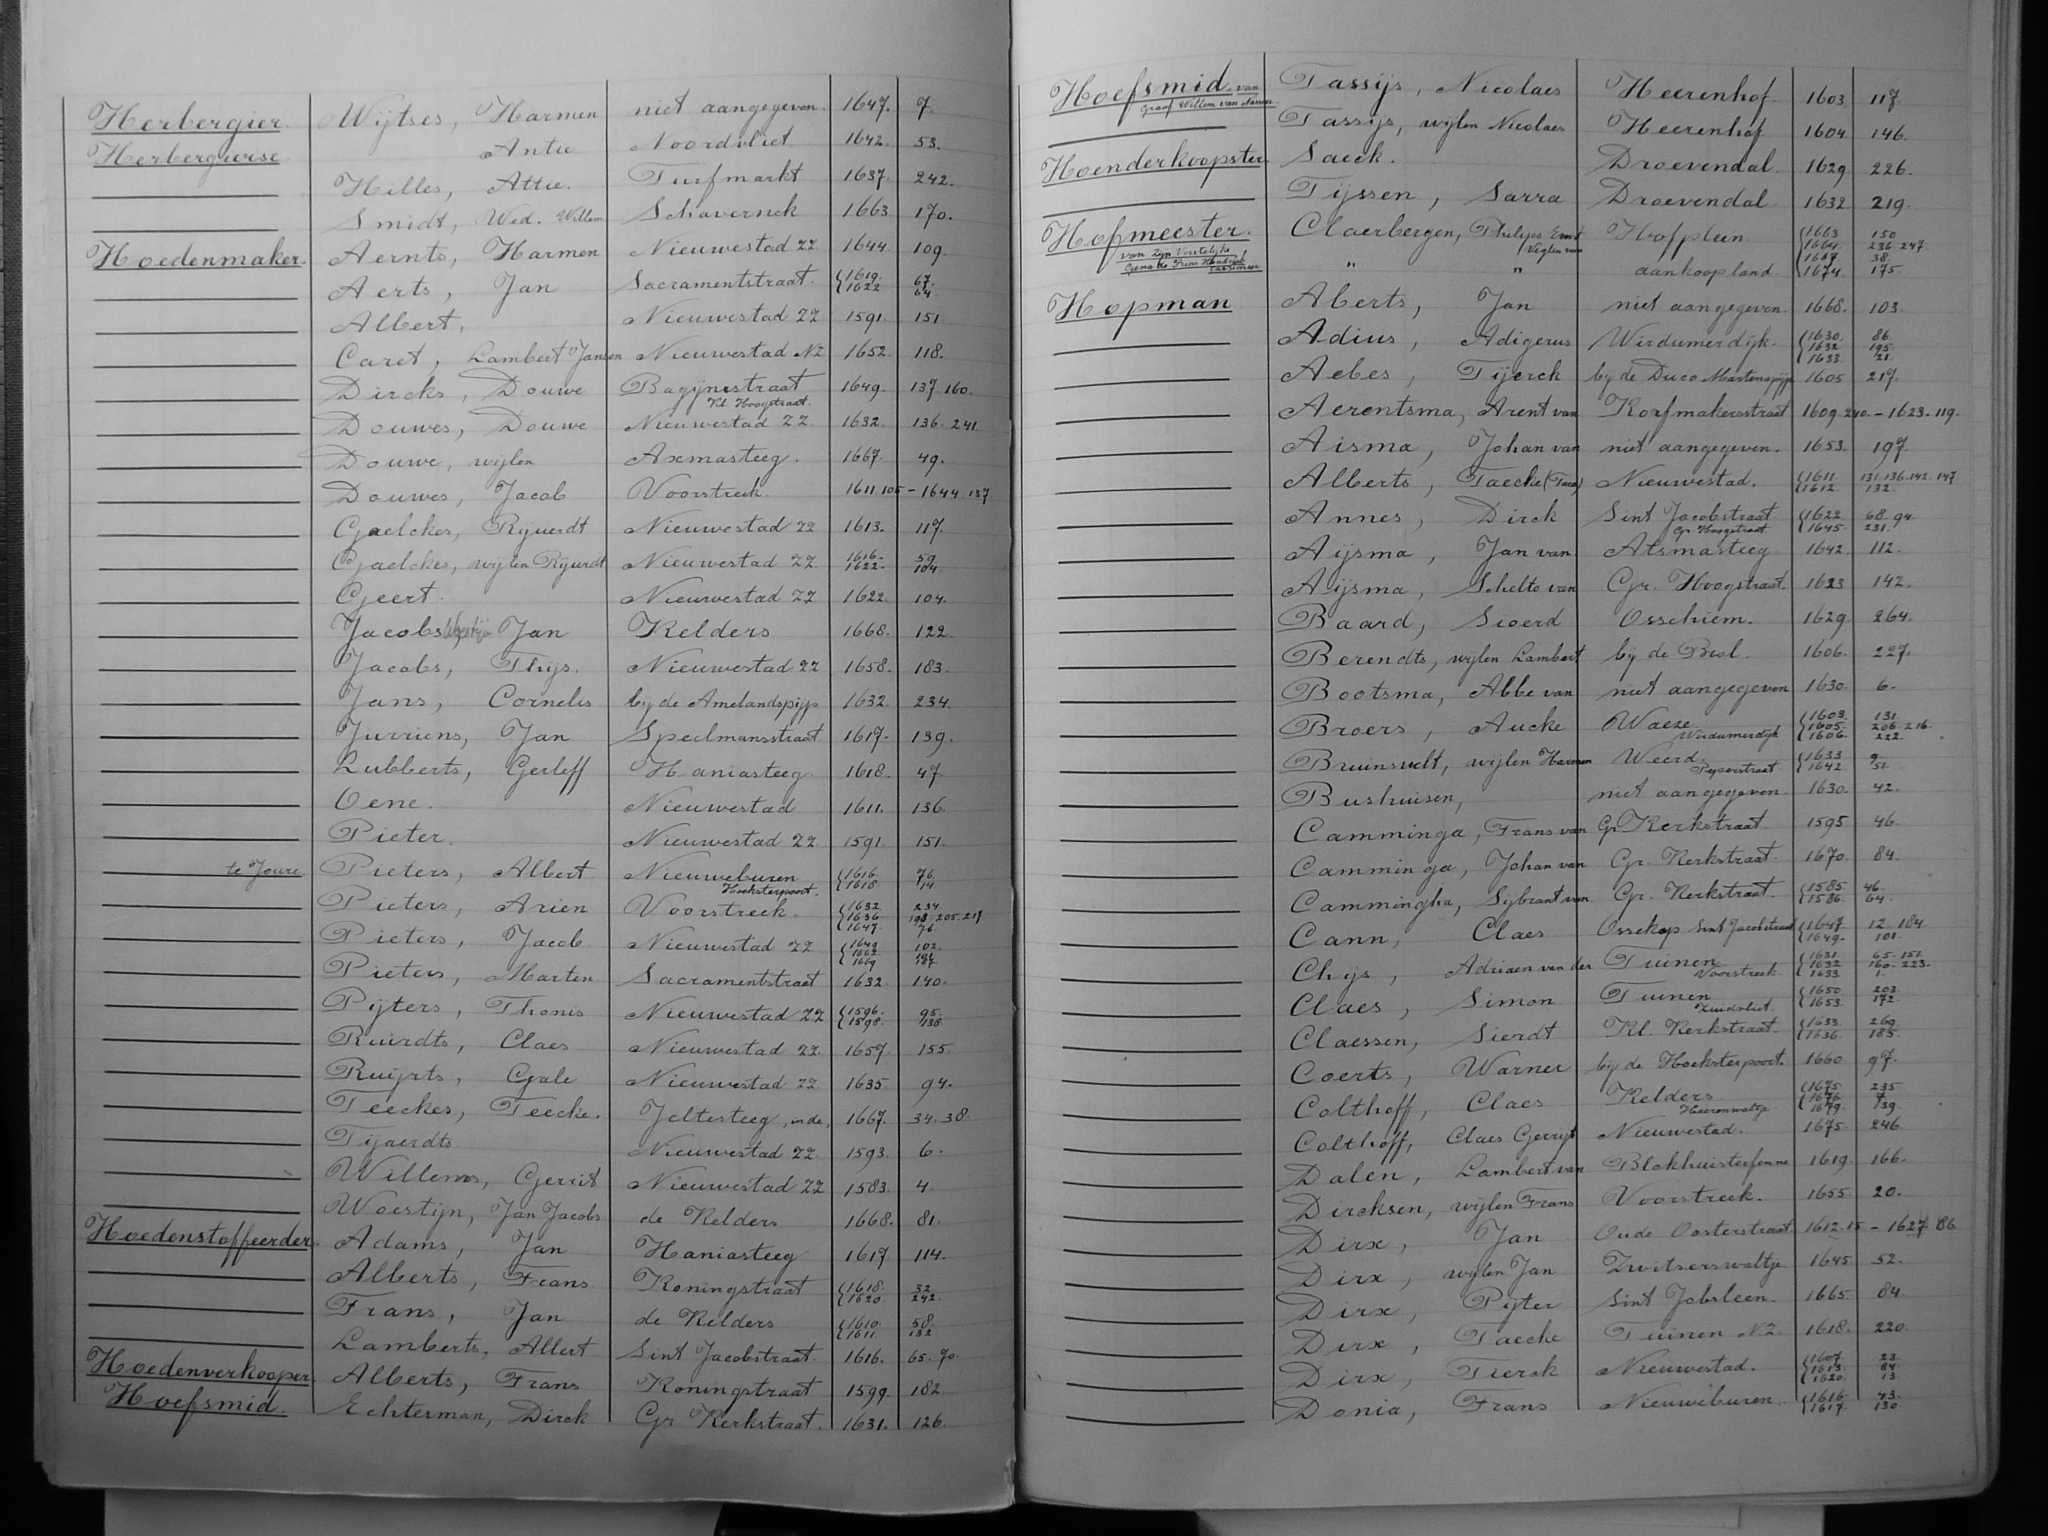 Herbergier. Wijtses, Harmen niet aangegeven. 1647. 7.
Herbergierse Antie Noordvliet 1642. 53.
Hilles, Attie. Turfmarkt 1637. 242.
Smidt, Wed. Willem Schavernek 1663 170.
Hoedenmaker. Aernts, Harmen Nieuwestad ZZ 1644 109.
Aerts, Jan Sacramentstraat. 1619. 67.
1622 64.
Albert, Nieuwestad ZZ 1591. 151
Caret, Lambert Jansen Nieuwestad NZ 1652. 118.
Dircks, Douwe Bagijnestraat 1649. 137. 160.
Kl. Hoogstraat.
Douwes, Douwe Nieuwestad ZZ. 1632. 136. 241
Douwe, wijlen Axmasteeg. 1667. 49.
Douwes, Jacob Voorstreek. 1611. 105 - 1644. 137
Gaelckes, Ryuerdt Nieuwestad ZZ 1613. 117.
Gaelckes, wijlen Rijurdt Nieuwestad ZZ 1616. 59
1622. 104.
Geert. Nieuwestad ZZ 1622. 104.
Jacobs Jan Kelders 1668. 122.
Jacobs, Thijs. Nieuwestad ZZ 1658. 183.
Jans, Cornelis bij de Amelandspijp 1632. 234.
Jurriens, Jan Speelmansstraat 1617. 139.
Lubberts, Gerleff Haniasteeg. 1618. 47
Oene. Nieuwestad 1611. 136.
Pieter. Nieuwestad ZZ 1591. 151.
te Joure Pieters, Albert Nieuweburen 1616. 76.
Hoeksterpoort. 1618 14.
Pieters, Arien Voorstreek. 1632 234
1636. 198. 205. 217
1647. 76.
Pieters, Jacob Nieuwestad ZZ 1649 102.
1662
1669
Pieters, Marten Sacramentstraat 1632. 140.
Pijters, Thonis Nieuwestad ZZ 1596. 95.
1598. 138
Ruirdts, Claes Nieuwestad ZZ. 1657. 155.
Ruijrts, Gale Nieuwestad ZZ 1635. 94.
Teeckes, Teecke. Jeltesteeg, in de, 1667. 34. 38.
Tjaerdts Nieuwestad ZZ 1593. 6.
Willems, Gerrit Nieuwestad ZZ 1583. 4.
Woestijn, Jan Jacobs de Kelders 1668. 81.
Hoedenstoffeerder Adams, Jan Haniasteeg 1617 114.
Alberts, Frans Koningstraat 1618. 32
1620. 242.
Frans, Jan de Kelders 1610. 58.
1611. 132
Lamberts, Albert Sint Jacobstraat. 1616. 65. 70.
Hoedenverkooper. Alberts, Frans Koningstraat 1599. 182.
Hoefsmid. Echterman, Dirck Gr. Kerkstraat. 1631. 126.
Hoefsmid. van Tassijs, Nicolaes Heerenhof. 1603. 117
Graaf Willem van Nassau
Tassijs, wijlen Nicolaes Heerenhof 1604. 146.
Hoenderkoopster. Saeck. Droevendal. 1629 226.
Tijssen, Sarra Droevendal. 1632 219.
Hofmeester. Claerbergen, Philips Ernst Hofplein 1663 150
van Zijn Vorstelijke Veglin van 1664. 236. 247.
1667 38.
" " aankoop land 1674. 175.
Hopman Aberts, Jan niet aangegeven 1668. 103.
Adius, Adigerus Wirdumerdijk. 1630. 86.
1632 195.
1633. 21.
Aebes, Tijerck bij de Duco Martenapijp 1605 217.
Aerentsma, Arent van Korfmakersstraat 1609. 240. - 1623. 119.
Aisma, Johan van niet aangegeven. 1653. 197.
Alberts, Taecke (Taco) Nieuwestad. 1611. 131. 136. 142. 147
1612 132.
Annes, Dirck Sint Jacobstraat 1622 68. 94.
Gr. Hoogstraat 1645. 231.
Aijsma, Jan van Atsmasteeg 1642. 112.
Aijsma, Schelto van Gr. Hoogstraat. 1623 142.
Baard, Sioerd Osschiem. 1629. 264.
Berendts, wijlen Lambert bij de Brol. 1606. 227.
Bootsma, Abbe van niet aangegeven 1630. 6.
Broers, Aucke Waeze. 1603. 131.
Wirdumerdijk 1605. 206. 216.
1606. 222.
Bruinsvelt, wijlen Harmen Weerd. 1633 9.
Peperstraat 1642. 51.
Bushuisen, niet aangegeven. 1630. 42.
Camminga, Frans van Gr. Kerkstraat 1595 46.
Camminga, Johan van Gr. Kerkstraat. 1670. 84.
Cammingha, Sijbrant van Gr. Kerkstraat. 1585. 46.
1586. 64.
Cann, Claes Ossekop Sint Jacobstraat 1647 12. 184.
1649. 101.
Chijs, Adriaen van der Tuinen 1631. 65. 151.
Voorstreek 1632 160. 223.
1633 1.
Claes, Simon Tuinen 1650. 203.
Zuidvliet. 1653. 172.
Claessen, Sierdt Kl. Kerkstraat. 1633. 269
1636. 185.
Coerts, Warner bij de Hoeksterpoort. 1660 97.
Colthoff, Claes Kelders 1675. 235
Heerenwaltje 1676. 7.
1679. 139.
Colthoff, Claes Gerryt Nieuwestad. 1675 246
Dalen, Lambert van Blokhuisterfenne 1619. 166.
Dircksen, wijlen Frans Voorstreek. 1655 20.
Dirx, Jan Oude Oosterstraat 1612. 15 - 1627 86
Dirx, wijlen Jan Zwitserswaltje 1645 52.
Dirx, Pijter Sint Jobsleen. 1665. 84
Dirx, Taecke Tuinen NZ 1618. 220
Dirx, Tierck Nieuwestad. 1607. 23.
1613. 84.
1620. 13.
Donia, Frans Nieuweburen 1616. 43.
1617. 130